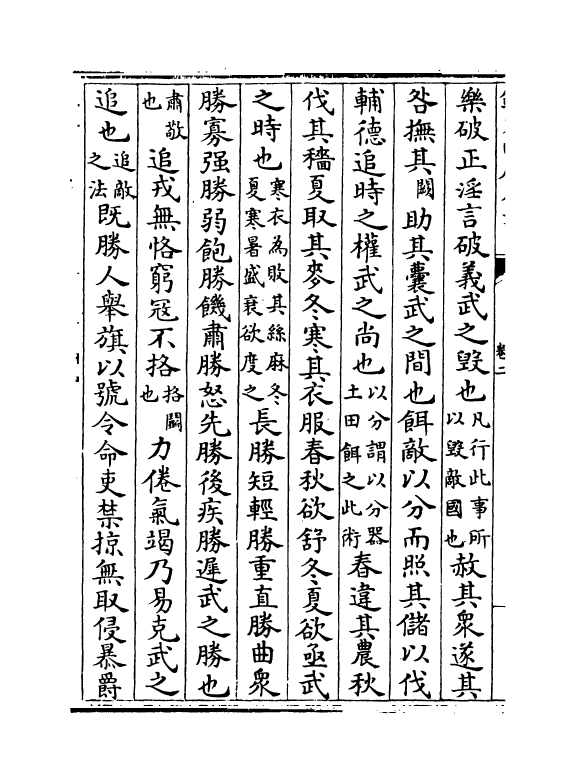 樂破正淫言破義武之毀也凡行此事所以毀敵國也赦其衆遂其
咎撫其闕助其囊武之間也餌敵以分而照其儲以伐
輔德追時之權武之尚也以分謂以分器土田餌之此術春違其農秋
伐其穡夏取其麥冬寒其衣服春秋欲舒冬夏欲亟武
之時也寒衣為敗其絲麻冬夏寒暑盛衰欲度之長勝短輕勝重直勝曲衆
勝寡强勝弱飽勝饑肅勝怒先勝後疾勝遲武之勝也
肅敬也追戎無恪窮寇不挌挌闘也力倦氣竭乃易克武之
追也追敵之法既勝人舉旗以號令命吏禁掠無取侵暴爵
卷二